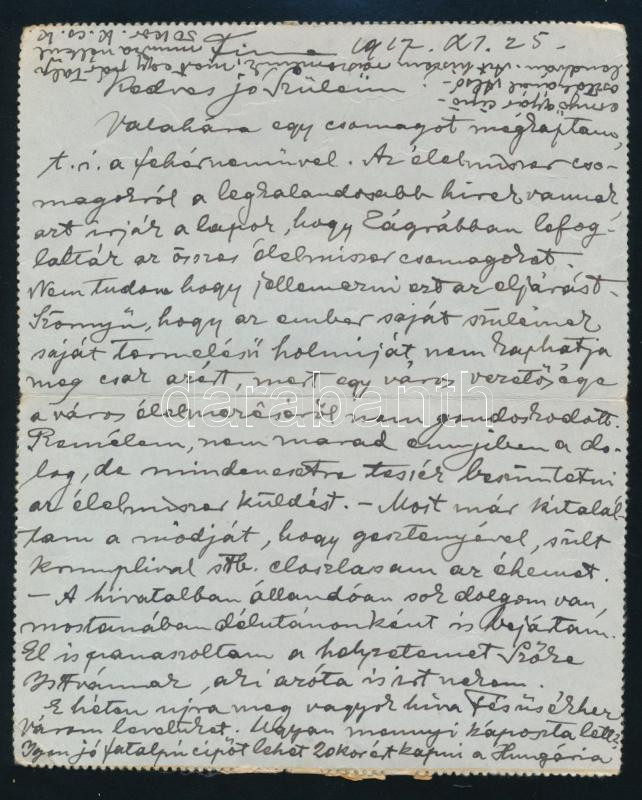 Fiume 1917. XI. 25.
Kedves jó Szüleim!
Valahára egy csomagot megkaptam,
t. i. a fehérneművel. Az élelmiszer cso-
magokról a legkalandosabb hirek vannak,
azt irják a lapok, hogy Zágrábban lefog-
lalták az összes élelmiszer csomagokat.
Nem tudom hogy jellemezni ezt az eljárást.
Szörnyű, hogy az ember saját szüleinek
saját termelésű holmiját nem kaphatja
meg csak azért, mert egy város vezetősége
a város élelmezéséről nem gondoskodott.
Remélem, nem marad ennyiben a do-
log, de mindenesetre tessék beszüntetni
az élelmiszer küldést. – Most már kitalál-
tam a módját, hogy gesztenyével, sült
krumplival stb. eloszlassam az éhemet.
– A hivatalban állandóan sok dolgom van,
mostanában délutánonként is bejátam.
El is panaszoltam a helyzetemet Szőke
Istvánnak, aki azóta is irt nekem.
E héten ujra meg vagyok hiva Fésüsékhez
várom levelüket. Ugyan mennyi káposzta lett?
Igen jó fatalpú cipőt lehet 20 korért kapni a Hungária
darabanth